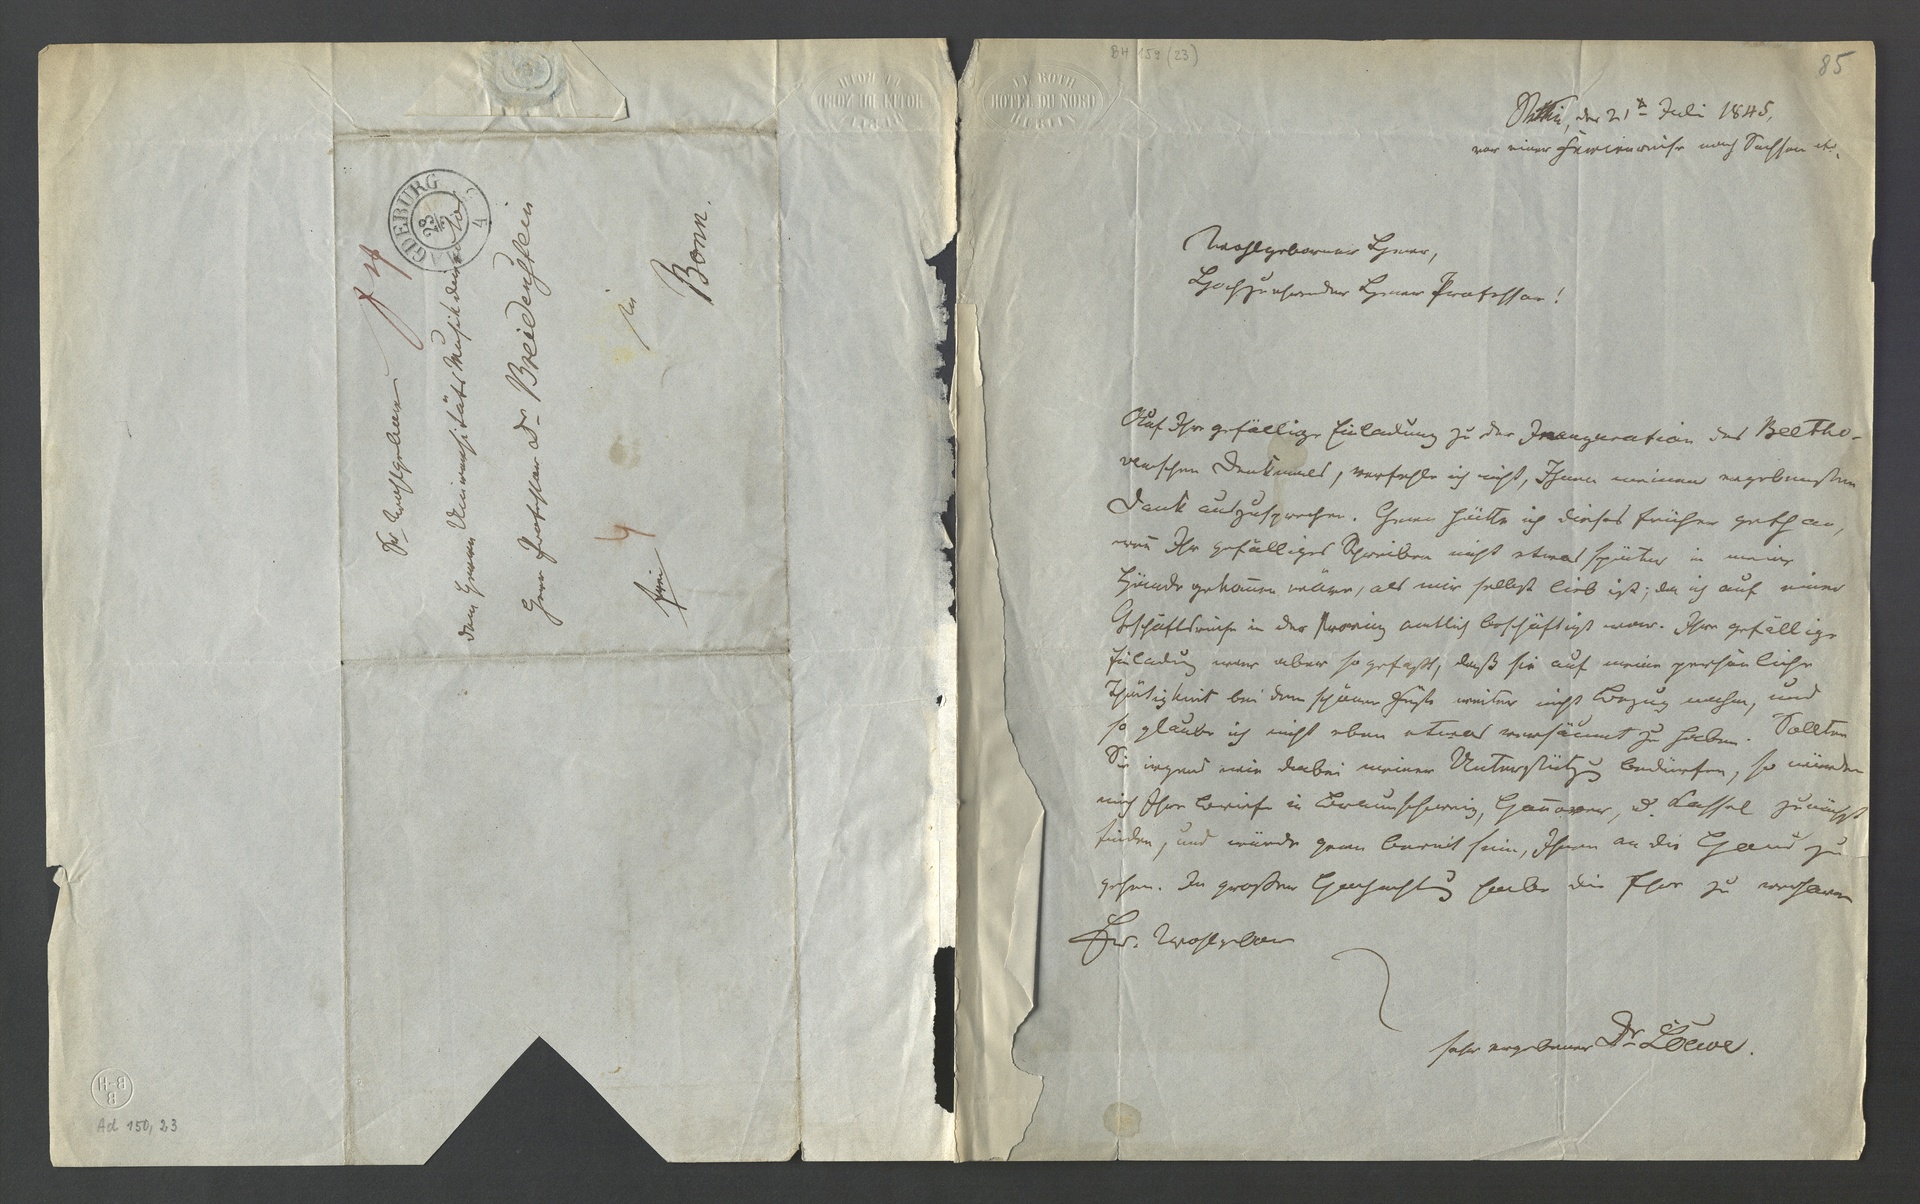 BH 159 (23)
85
LE ROTH
HOTEL DU NORD
BERLIN
den 21t Juli 1845,
vor einer Ferienreise nach Sachsen etc.
Wohlgeborner Herr,
Hochzuehrender Herr Professor!
Auf Ihre gefällige Einladung zu der Inauguration des Beetho-
venschen Denkmals, verfehle ich nicht, Ihnen meinen ergebensten
Dank auszusprechen. Gern hätte ich dieses früher gethan,
wen̄ Ihr gefälliges Schreiben nicht etwas später in meine
Hände gekom̄en wäre, als mir selbst lieb ist; da ich auf einer
Geschäftsreise in der Provinz amtlich beschäftigt war. Ihre gefällige
Einladung war aber so gefaßt, daß sie auf meine persönliche
Thätigkeit bei dem schönen Feste weiter nicht Bezug nahm, und
so glaube ich nicht eben etwas versäumt zu haben. Sollten
Sie irgend wie dabei meiner Unterstützung bedürfen, so würden
mich Ihre Briefe in Braunschweig, Han̄over, u. Kassel zunächst
finden, und würde gern bereit sein, Ihnen an die Hand zu
gehen. In großer Hochachtung habe die Ehre zu verharren
Ew. Wohlgeboren
sehr ergebener Dr Löwe.
Sr Wohlgeboren
dem Herrn Universitäts Musikdirector
Herr Professor Dr Breidenstein
in
Bonn.
frei
4
MAGDEBURG
23
7
B-H
B
Ad 150, 23